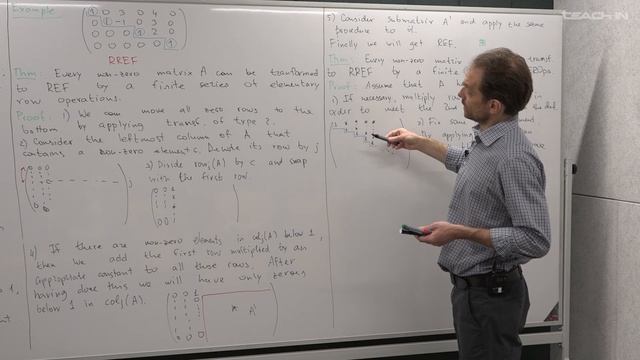 Example
1 0 3 0 4 0
0 1 -1 0 3 0
0 0 0 1 2 0
0 0 0 0 0 1
RREF
Thm: Every non-zero matrix A can be transformed
to REF by a finite series of elementary
row operations.
Proof: 1) We can move all zero rows to the
bottom by applying transf. of type 2.
2) Consider the leftmost column of A that
contains a non-zero element c. Denote its row by j
j
3) Divide row_j(A) by c and swap
with the first row.
4) If there are non-zero elements in col_j(A) below 1,
then we add the first row multiplied by an
appropriate constant to all those rows. After
having done this we will have only zeros
below 1 in col_j(A).
* A'
5) Consider submatrix A' and apply the same
procedure to it.
Finally we will get REF.
Thm: Every non-zero matrix transf.
to RREF by a finite EROps.
Proof: Assume that A
1) If necessary, multiply
order to meet the 2nd
2) Fix
by applying
TEACH-IN